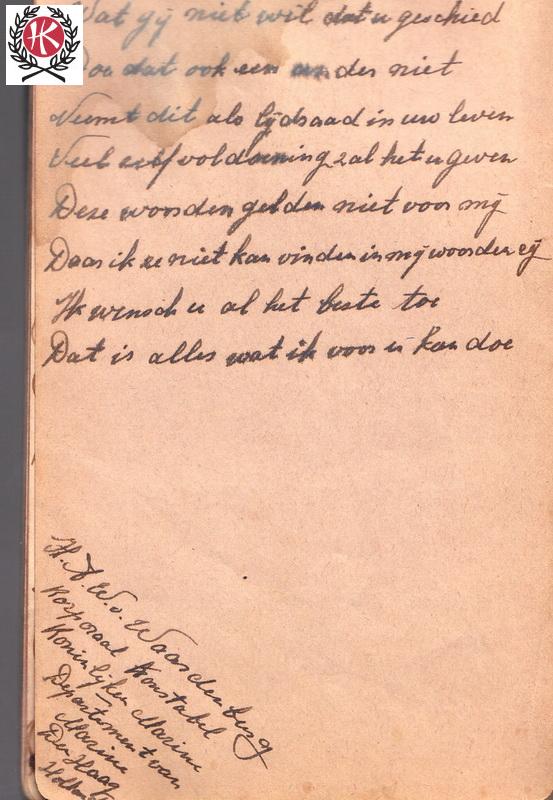 Wat gij niet wil dat u geschied
Doe dat ook een ander niet
Neemt dit als lijdraad in uw leven
Veel zelfvoldoening zal het u geven
Deze woorden gelden niet voor mij
Daar ik ze niet kan vinden in mij woorden rij
Ik wensch u al het beste toe
Dat is alles wat ik voor u kan doe
H.A.W.v. Waardenburg
Korporaal Konstabel
Koninlijken Marine
Departement van
Marine
Den Haag
Holland
HK